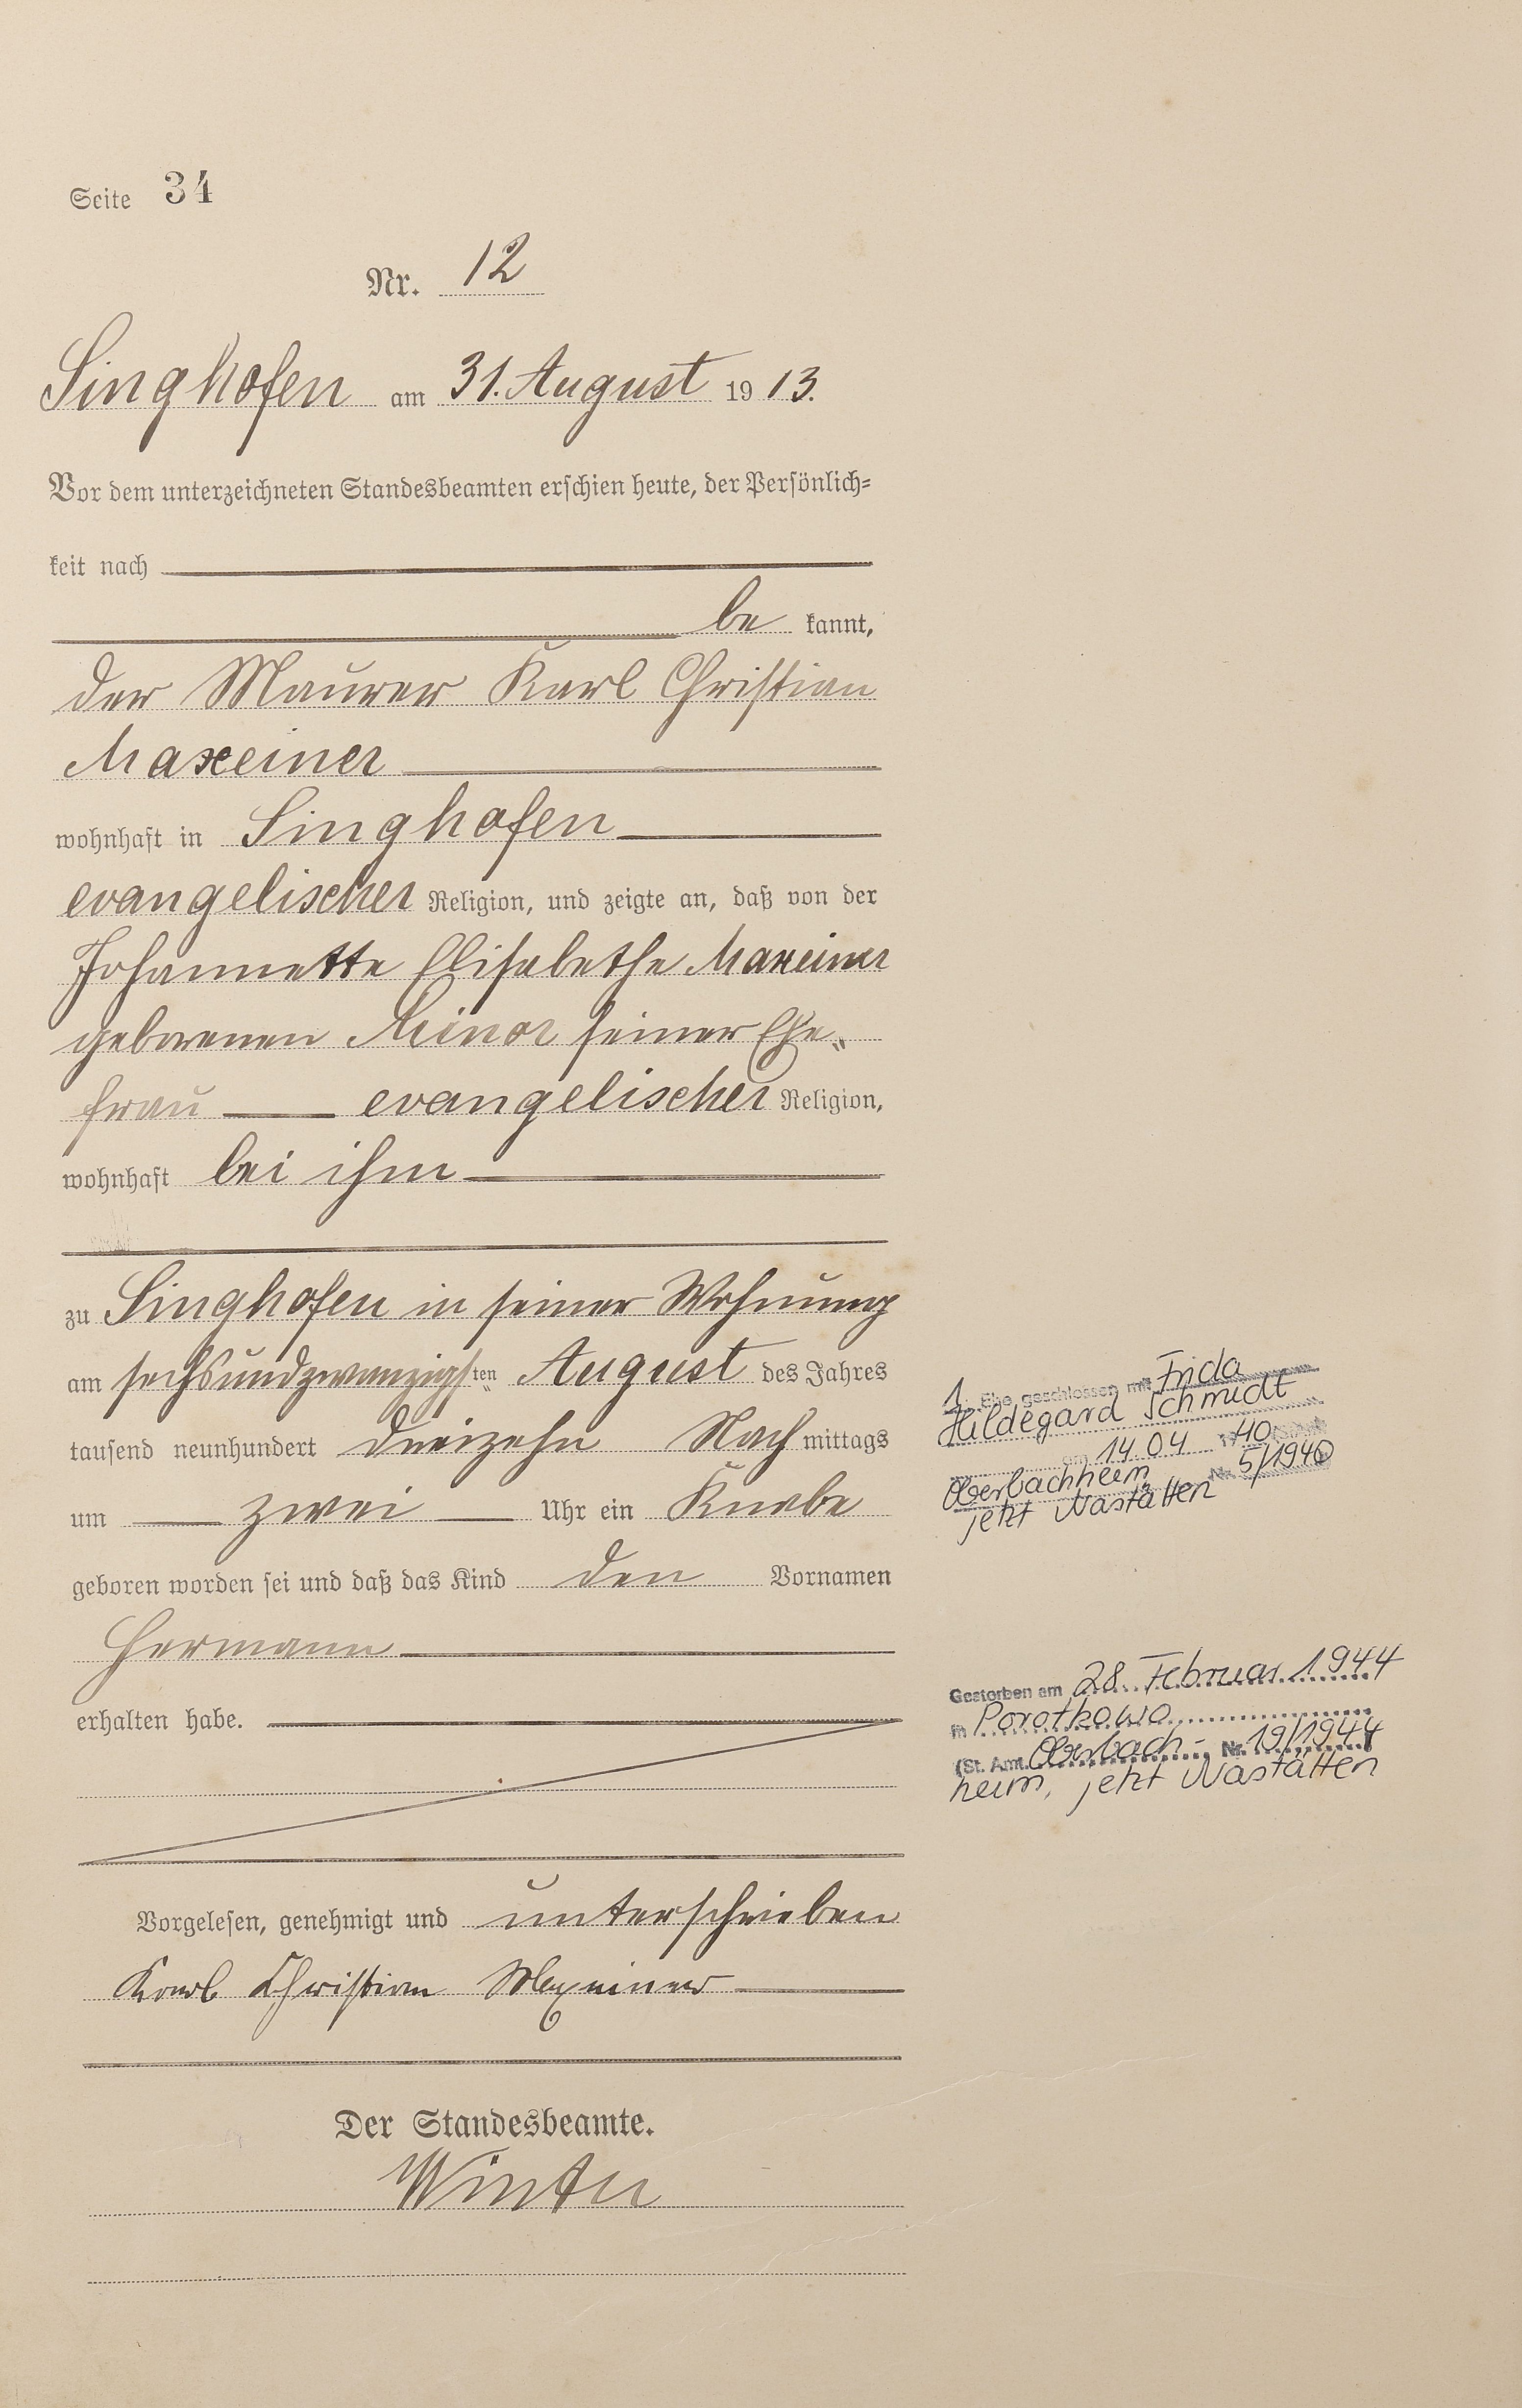 Seite 34
Nr. 12
Singhofen am 31. August 1913.
Vor dem unterzeichneten Standesbeamten erschien heute, der Persönlich=
keit nach
be kannt,
der Maurer Karl Christian
Maxeiner
wohnhaft in Singhofen
evangelischer Religion, und zeigte an, daß von der
Johannette Elisabethe Maxeiner
geborenen Minor seiner Ehe„
frau evangelischer Religion,
wohnhaft bei ihm
zu Singhofen in seiner Wohnung
am sechsundzwanzigsten August des Jahres
tausend neunhundert dreizehn Nachmittags
um zwei Uhr ein Knabe
geboren worden sei und daß das Kind den Vornamen
Hermann
erhalten habe.
Vorgelesen, genehmigt und unterschrieben
Karl Christian Maxeiner
Der Standesbeamte.
Winter
1. Ehe geschlossen mit Frida
Hildegard Schmidt
am 14.04 1940
Oberbachheim Nr. 5/1940
jetzt Nastätten
Gestorben am 28. Februar 1944
in Porotkowo
(St. Amt Oberbach- Nr. 19/1944
heim, jetzt Nastätten